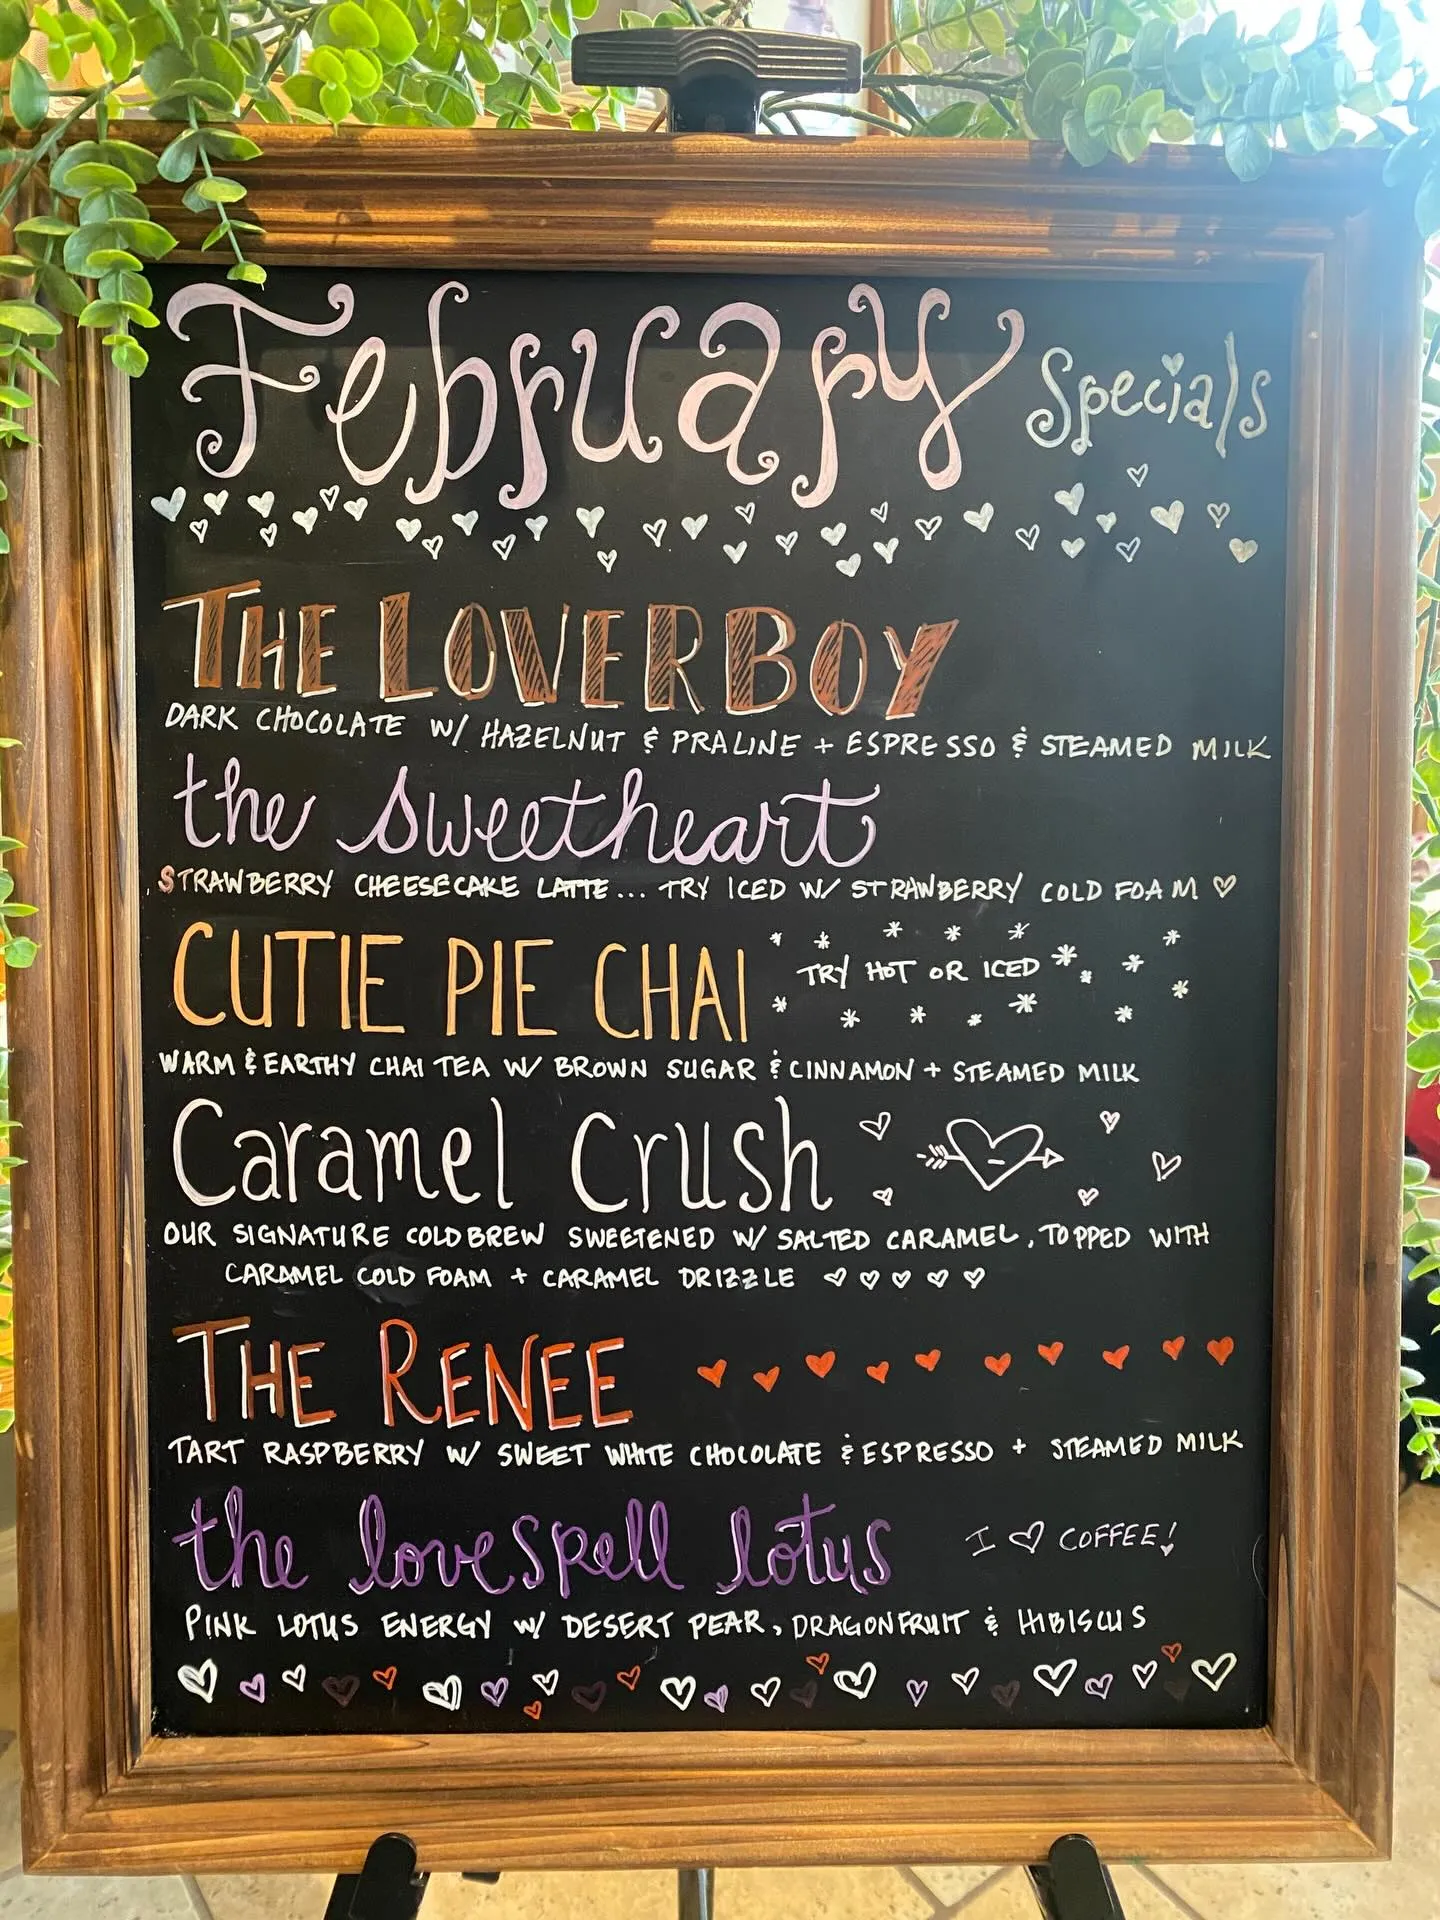 February Specials
THE LOVERBOY
DARK CHOCOLATE W/ HAZELNUT & PRALINE + ESPRESSO & STEAMED MILK
the sweetheart
STRAWBERRY CHEESECAKE LATTE... TRY ICED W/ STRAWBERRY COLD FOAM ♡
CUTIE PIE CHAI TRY HOT OR ICED
WARM & EARTHY CHAI TEA W/ BROWN SUGAR & CINNAMON + STEAMED MILK
Caramel Crush
OUR SIGNATURE COLDBREW SWEETENED W/ SALTED CARAMEL, TOPPED WITH
CARAMEL COLD FOAM + CARAMEL DRIZZLE ♡ ♡ ♡ ♡ ♡
THE RENEE
TART RASPBERRY W/ SWEET WHITE CHOCOLATE & ESPRESSO + STEAMED MILK
the lovespell lotus I ♡ COFFEE!
PINK LOTUS ENERGY W/ DESERT PEAR, DRAGONFRUIT & HIBISCUS